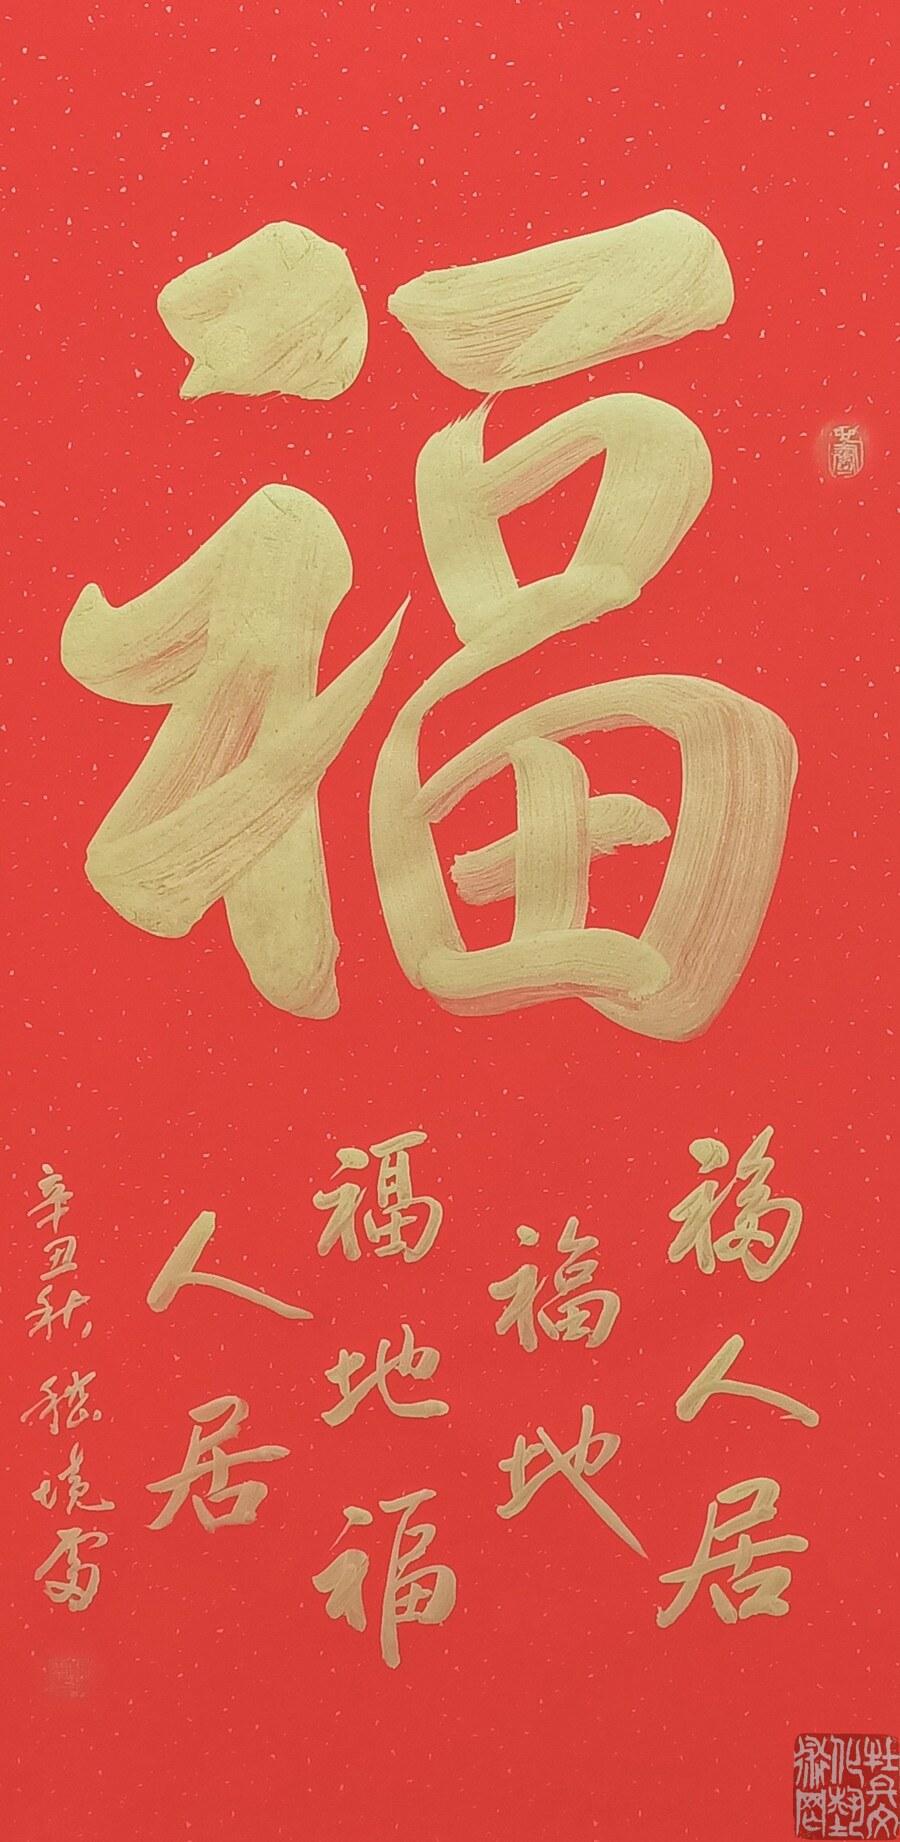 福
福人居
福地
福地福
人居
辛丑秋